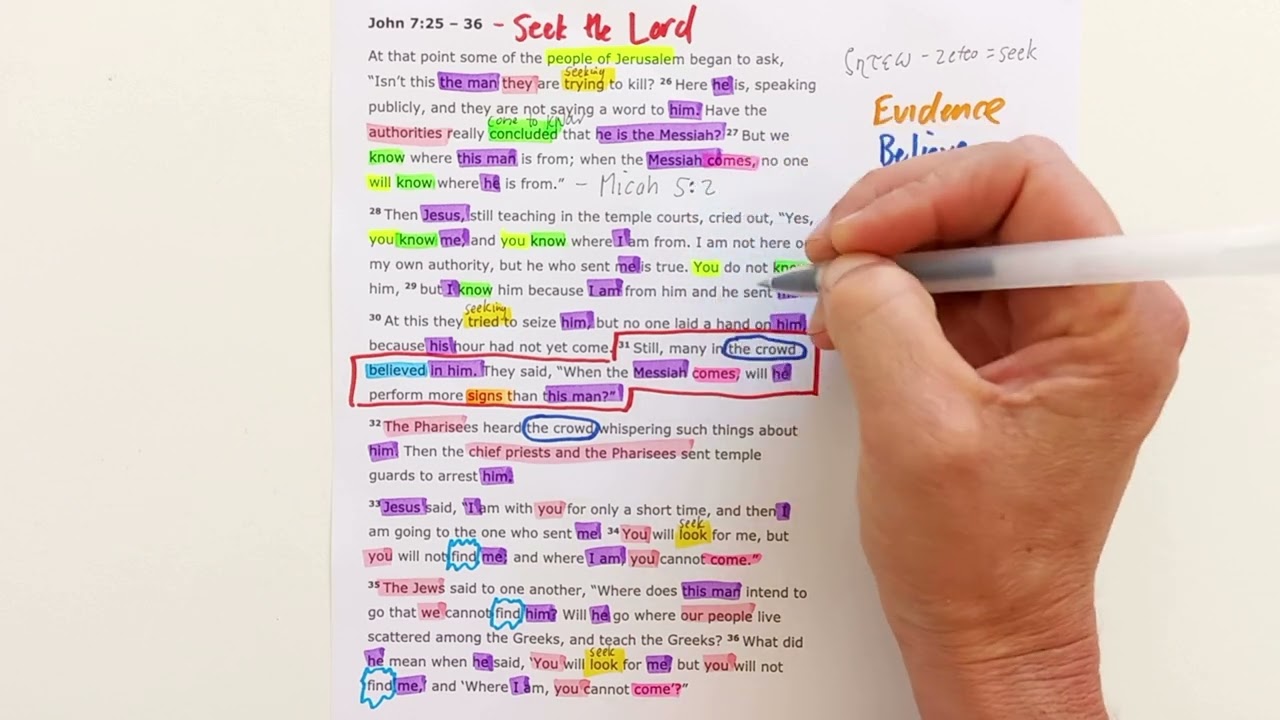 John 7:25 – 36 - Seek the Lord
At that point some of the people of Jerusalem began to ask,
ζητεω - zeteo = seek
seeking
“Isn’t this the man they are trying to kill? 26 Here he is, speaking
publicly, and they are not saying a word to him. Have the
Evidence
come to know
authorities really concluded that he is the Messiah? 27 But we
Believe
know where this man is from; when the Messiah comes, no one
will know where he is from.” - Micah 5:2
28 Then Jesus, still teaching in the temple courts, cried out, “Yes,
you know me, and you know where I am from. I am not here
my own authority, but he who sent me is true. You do not
him, 29 but I know him because I am from him and he sent
seeking
30 At this they tried to seize him, but no one laid a hand on him,
because his hour had not yet come. 31 Still, many in the crowd
believed in him. They said, “When the Messiah comes, will he
perform more signs than this man?”
32 The Pharisees heard the crowd whispering such things about
him. Then the chief priests and the Pharisees sent temple
guards to arrest him.
33 Jesus said, “I am with you for only a short time, and then I
seek
am going to the one who sent me. 34 You will look for me, but
you will not find me; and where I am, you cannot come.”
35 The Jews said to one another, “Where does this man intend to
go that we cannot find him? Will he go where our people live
scattered among the Greeks, and teach the Greeks? 36 What did
seek
he mean when he said, ‘You will look for me, but you will not
find me,’ and ‘Where I am, you cannot come’?”